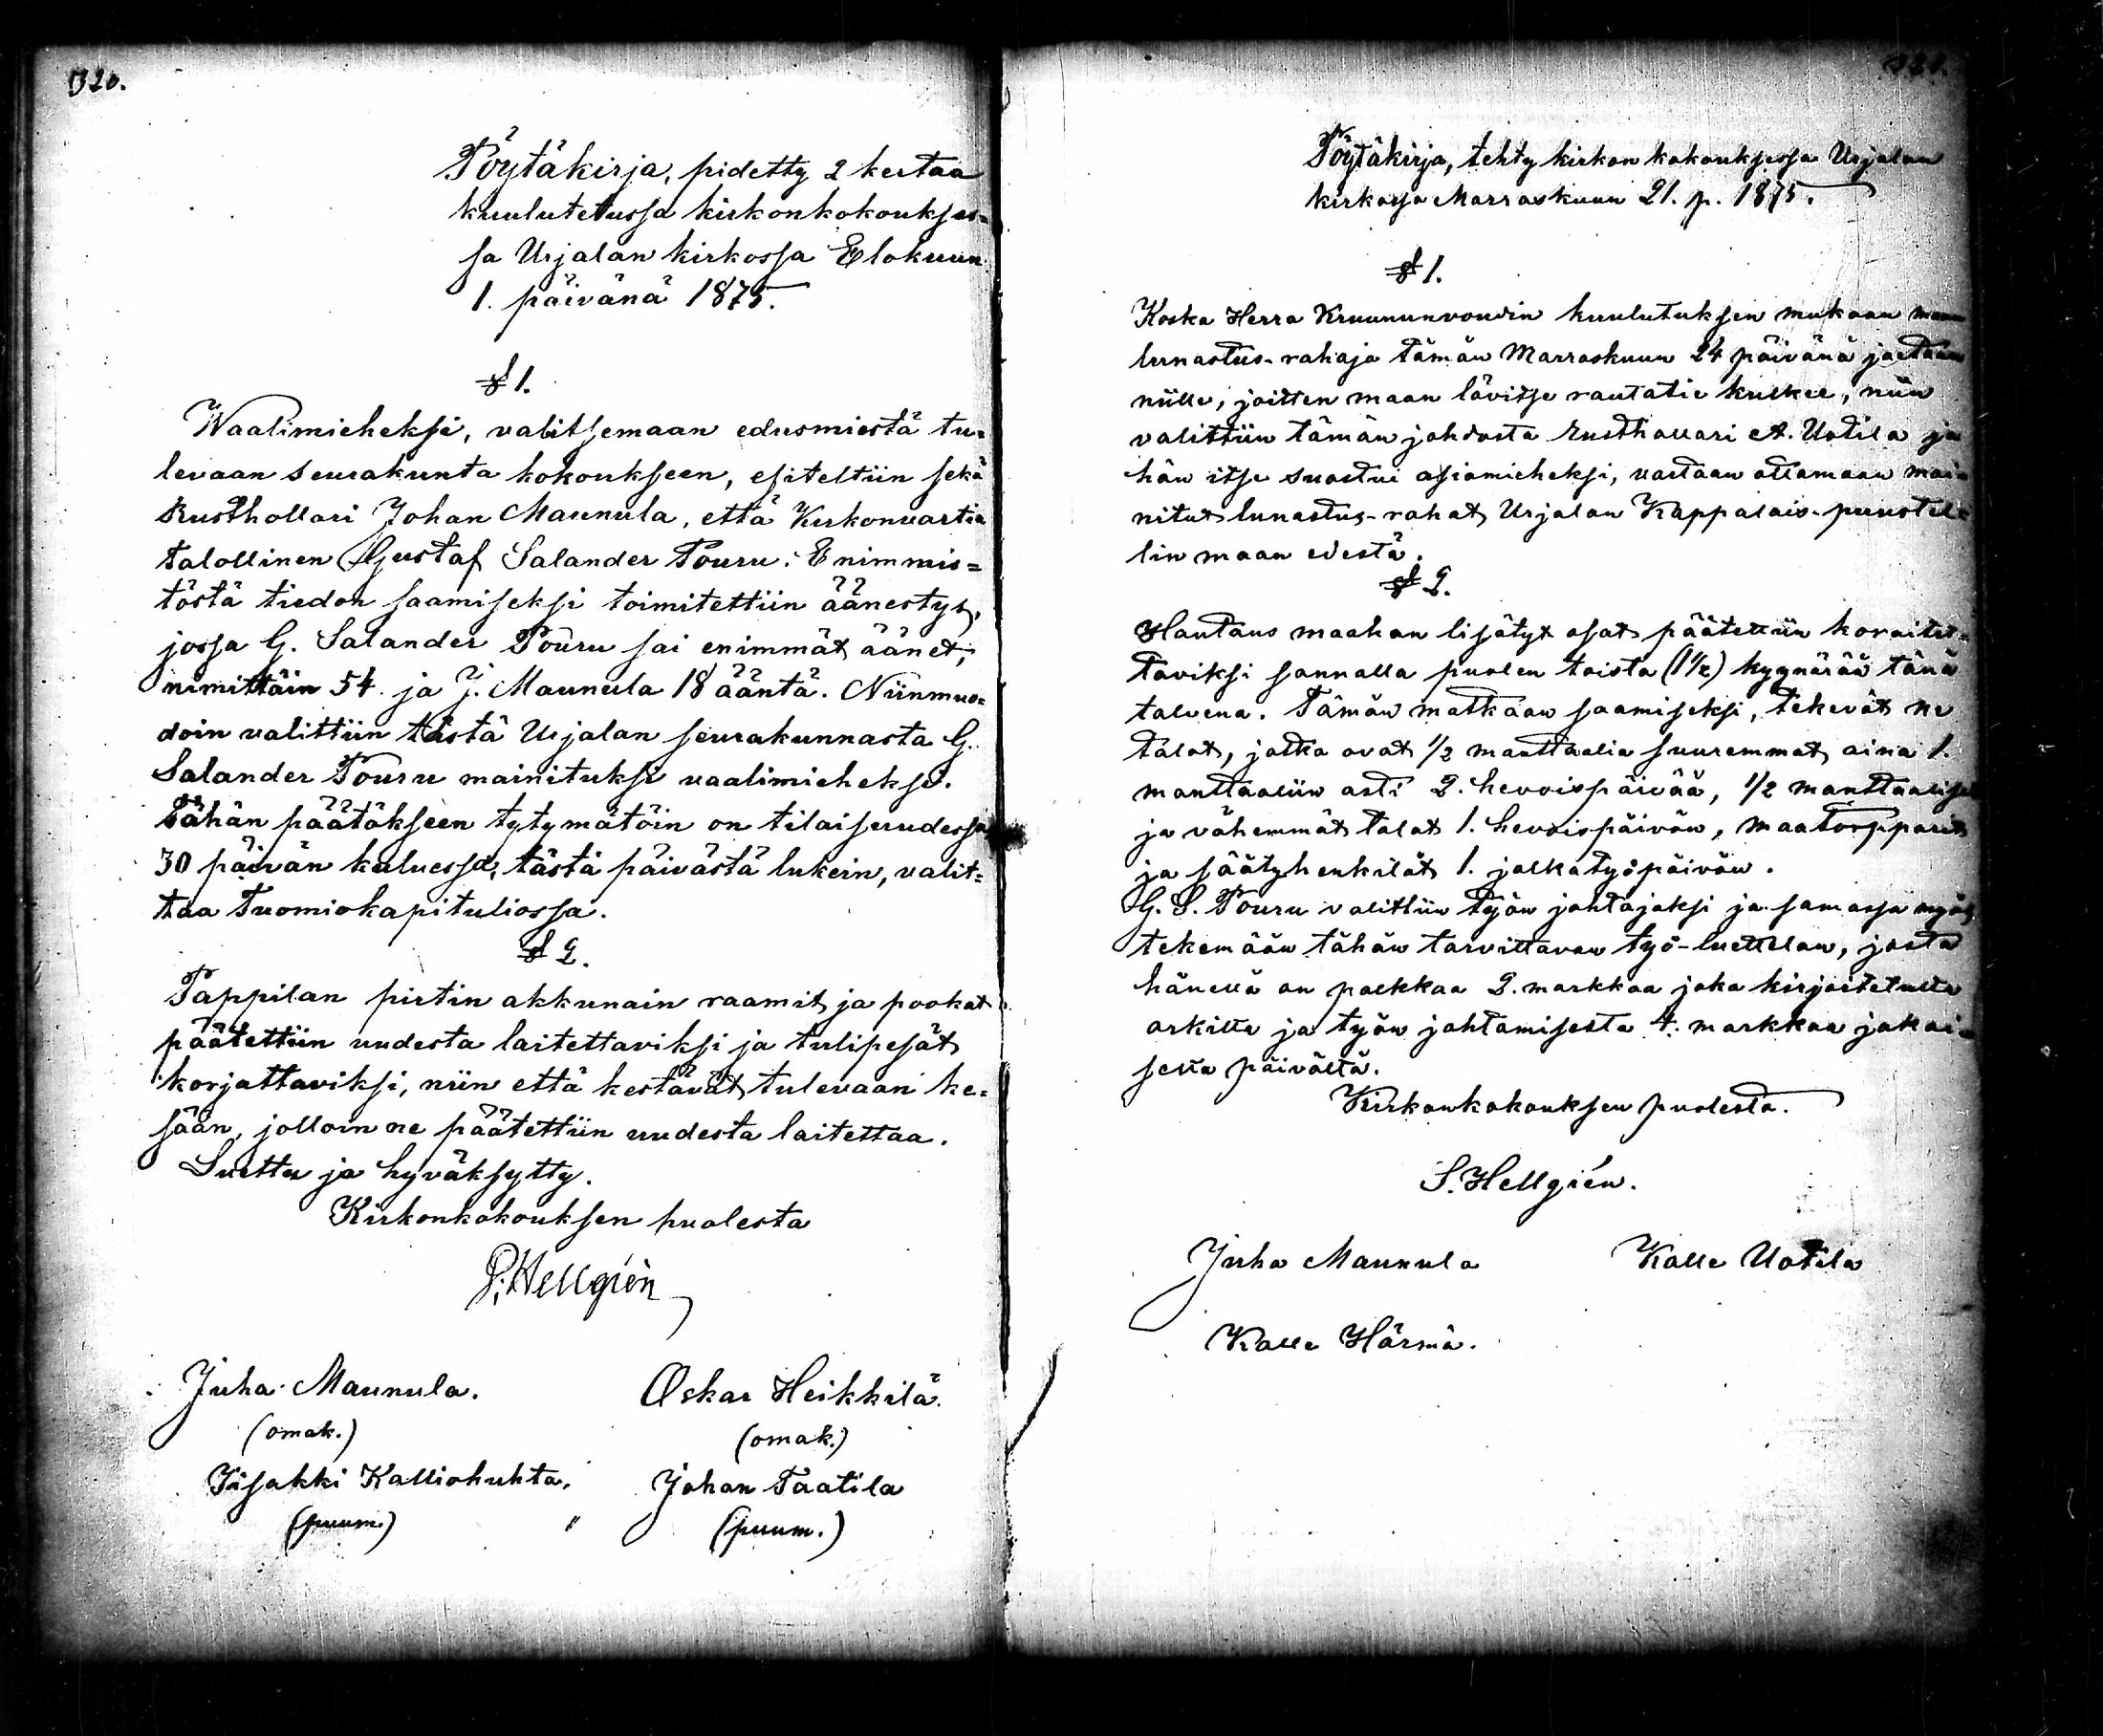 320.
Pöytäkirja, pidetty 2 kertaa
kuulutetussa kirkonkokoukses=
sa Urjalan kirkossa Elokuun
1. päivänä 1875.
§ 1.
Waalimieheksi, valitsemaan edusmiestä tu=
levaan seurakunta kokoukseen, esiteltiin sekä
Rusthollari Johan Maunula, että Kirkonvartia
talollinen Gustaf Salander Pouru. Enimmis=
töstä tiedon saamiseksi toimitettiin äänestys,
jossa G. Salander Pouru sai enimmät äänet,
nimittäin 54 ja J. Maunula 18 ääntä. Niinmuo=
doin valittiin tästä Urjalan seurakunnasta G.
Salander Pouru mainituksi vaalimieheksi.
Tähän päätökseen tytymätöin on tilaisuudessa
30 päivän kuluessa, tästä päivästä lukein, valit=
taa Tuomiokapituliossa.
§ 2.
Pappilan pirtin akkunain raamit ja pookat
päätettiin uudesta laitettaviksi ja tulipesät
korjattaviksi, niin että kestävät tulevaan ke=
sään, jolloin ne päätettiin uudesta laitettaa.
Luettu ja hyväksytty.
Kirkonkokouksen puolesta
S. Hellgrén
Juha Maunula. Oskar Heikkilä.
(omak.) (omak.)
Iisakki Kalliohuhta, Johan Taatila
(puum.) " (puum.)
321.
Pöytäkirja, tehty kirkon kokouksessa Urjalan
kirkossa Marraskuun 21. p. 1875.
§ 1.
Koska Herra Kruununvoudin kuulutuksen mukaan maan
lunastus-rahaja tämän Marraskuun 24 päivänä jaetaan
niille, joitten maan lävitse rautatie kulkee, niin
valittiin tämän johdosta Rusthollari A. Uotila ja
hän itse suostui asiamieheksi, vastaan ottamaan mai=
nitut lunastus-rahat Urjalan Kappalais-puustel=
lin maan edestä.
§ 2.
Hautaus maahan lisätyt osat päätettiin koroitet=
taviksi sannalla puolen toista (1½) kyynärää tänä
talvena. Tämän matkaan saamiseksi, tekevät ne
talot, jotka ovat ½ manttaalia suuremmat aina 1.
manttaaliin asti 2. hevoispäivää, ½ manttaaliset
ja vähemmät talot 1. hevoispäivän, maatorpparit
ja säätyhenkilöt 1. jalkatyöpäivän.
G. S. Pouru valittiin työn johtajaksi ja samassa myös
tekemään tähän tarvittavan työ-luettelon, josta
hänellä on palkkaa 2. markkaa joka kirjoitetulta
arkilta ja työn johtamisesta 4. markkaa jokai=
selta päivältä.
Kirkonkokouksen puolesta.
S. Hellgrén.
Juha Maunula Kalle Uotila
Kalle Härmä.